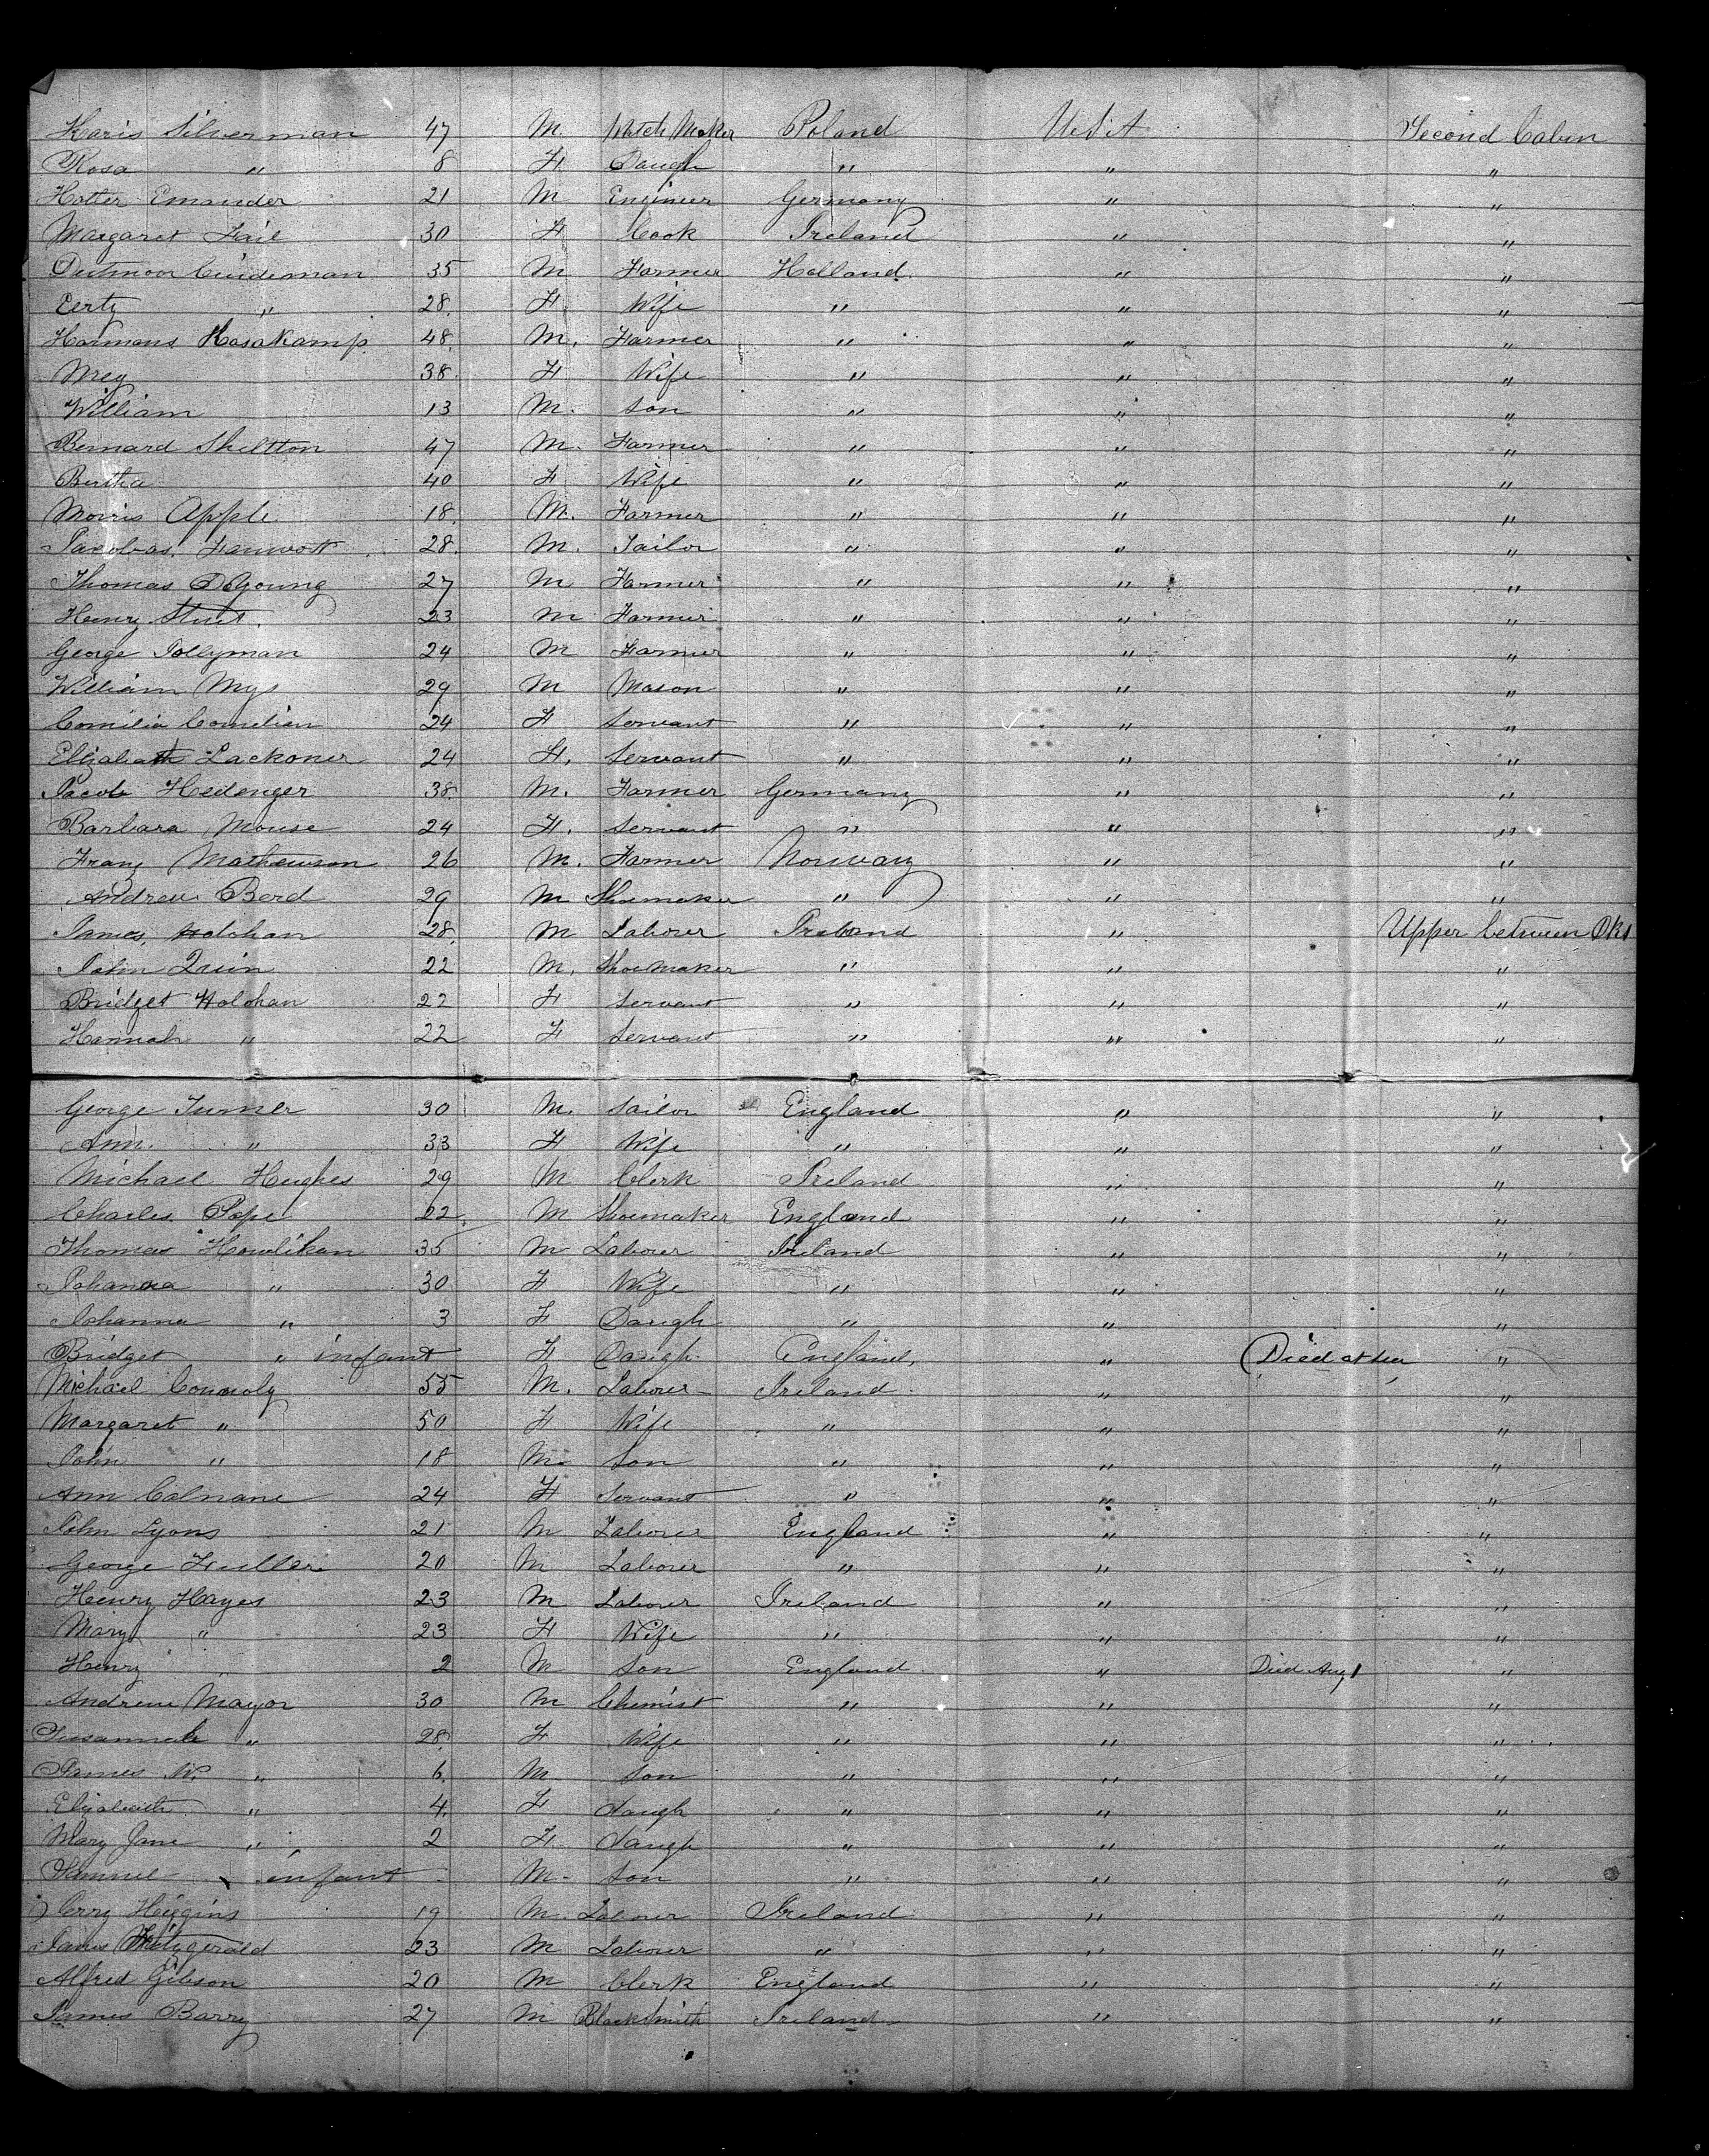 Haris Silverman 47 M. Watch Maker Poland U.S.A Second Cabin
Rosa " 8 F Daugh " " "
Hotter Emander 21 M Engineer Germany " "
Margaret Fail 30 F Cook Ireland " "
35 M Farmer Holland. " "
Eerty " 28. F. Wife " " "
Harmans Hasakamp 48. M. Farmer " " "
Meg 38. F Wife " " "
William 13 M. Son " " "
Bernard Sheltton 47 M. Farmer " " "
Bertha 40 F Wife " " "
Morris Apple 18. M. Farmer " " "
Jacobas. 28. M. Tailor " " "
Thomas DeYoung 27 M Farmer " " "
Henry Strut. 23 M Farmer " " "
George Jollyman 24 M Farmer " " "
William Mys 29 M Mason " " "
Cornelia Cornelian 24 F Servant " " "
Elizabeth Lackoner 24 F. Servant " " "
Jacob Hedenger 38. M. Farmer Germany " "
Barbara Mouse 24 F. Servant " " "
Franz Mathewson 26 M. Farmer Norway " "
Andrew Berd 29 M Shoemaker " " "
James. Holohan 28. M Laborer Ireland " Upper between Dks
John Quin 22 M. Shoemaker " " "
Bridget Holohan 22 F Servant " " "
Hannah " 22 F Servant " " "
George Turner 30 M. Sailor England " "
Ann. " 33 F Wife " " "
Michael Hughes 29 M Clerk Ireland " "
Charles Pope 22. M Shoemaker England " "
Thomas Howlihan 35 M Laborer Ireland " "
Johanna " 30 F Wife " " "
Johanna " 3 F Daugh " " "
Bridget " infant F Daugh. England. " Died at sea "
Michael Connoly 55 M. Laborer Ireland. " "
Margaret " 50 F Wife " " "
John " 18 M. Son " " "
Ann Calnane 24 F Servant " " "
John Lyons 21 M Laborer England " "
George Fuller 20 M Laborer " " "
Henry Hayes 23 M Laborer Ireland " "
Mary " 23 F Wife " " "
Henry " 2 M Son England. " Died Aug 1 "
Andrew Mayor 30 M Chemist " " "
Susannah " 28. F Wife " " "
James W. " 6. M Son " " "
Elizabeth " 4. F daugh " " "
Mary Jane " 2 F. daugh " " "
Samuel " infant M. Son " " "
Jerry Higgins 19 M. Laborer Ireland " "
James Fitzgerald 23 M Laborer " " "
Alfred Gibson 20 M Clerk England " "
James Barry 27 M BlackSmith Ireland " "